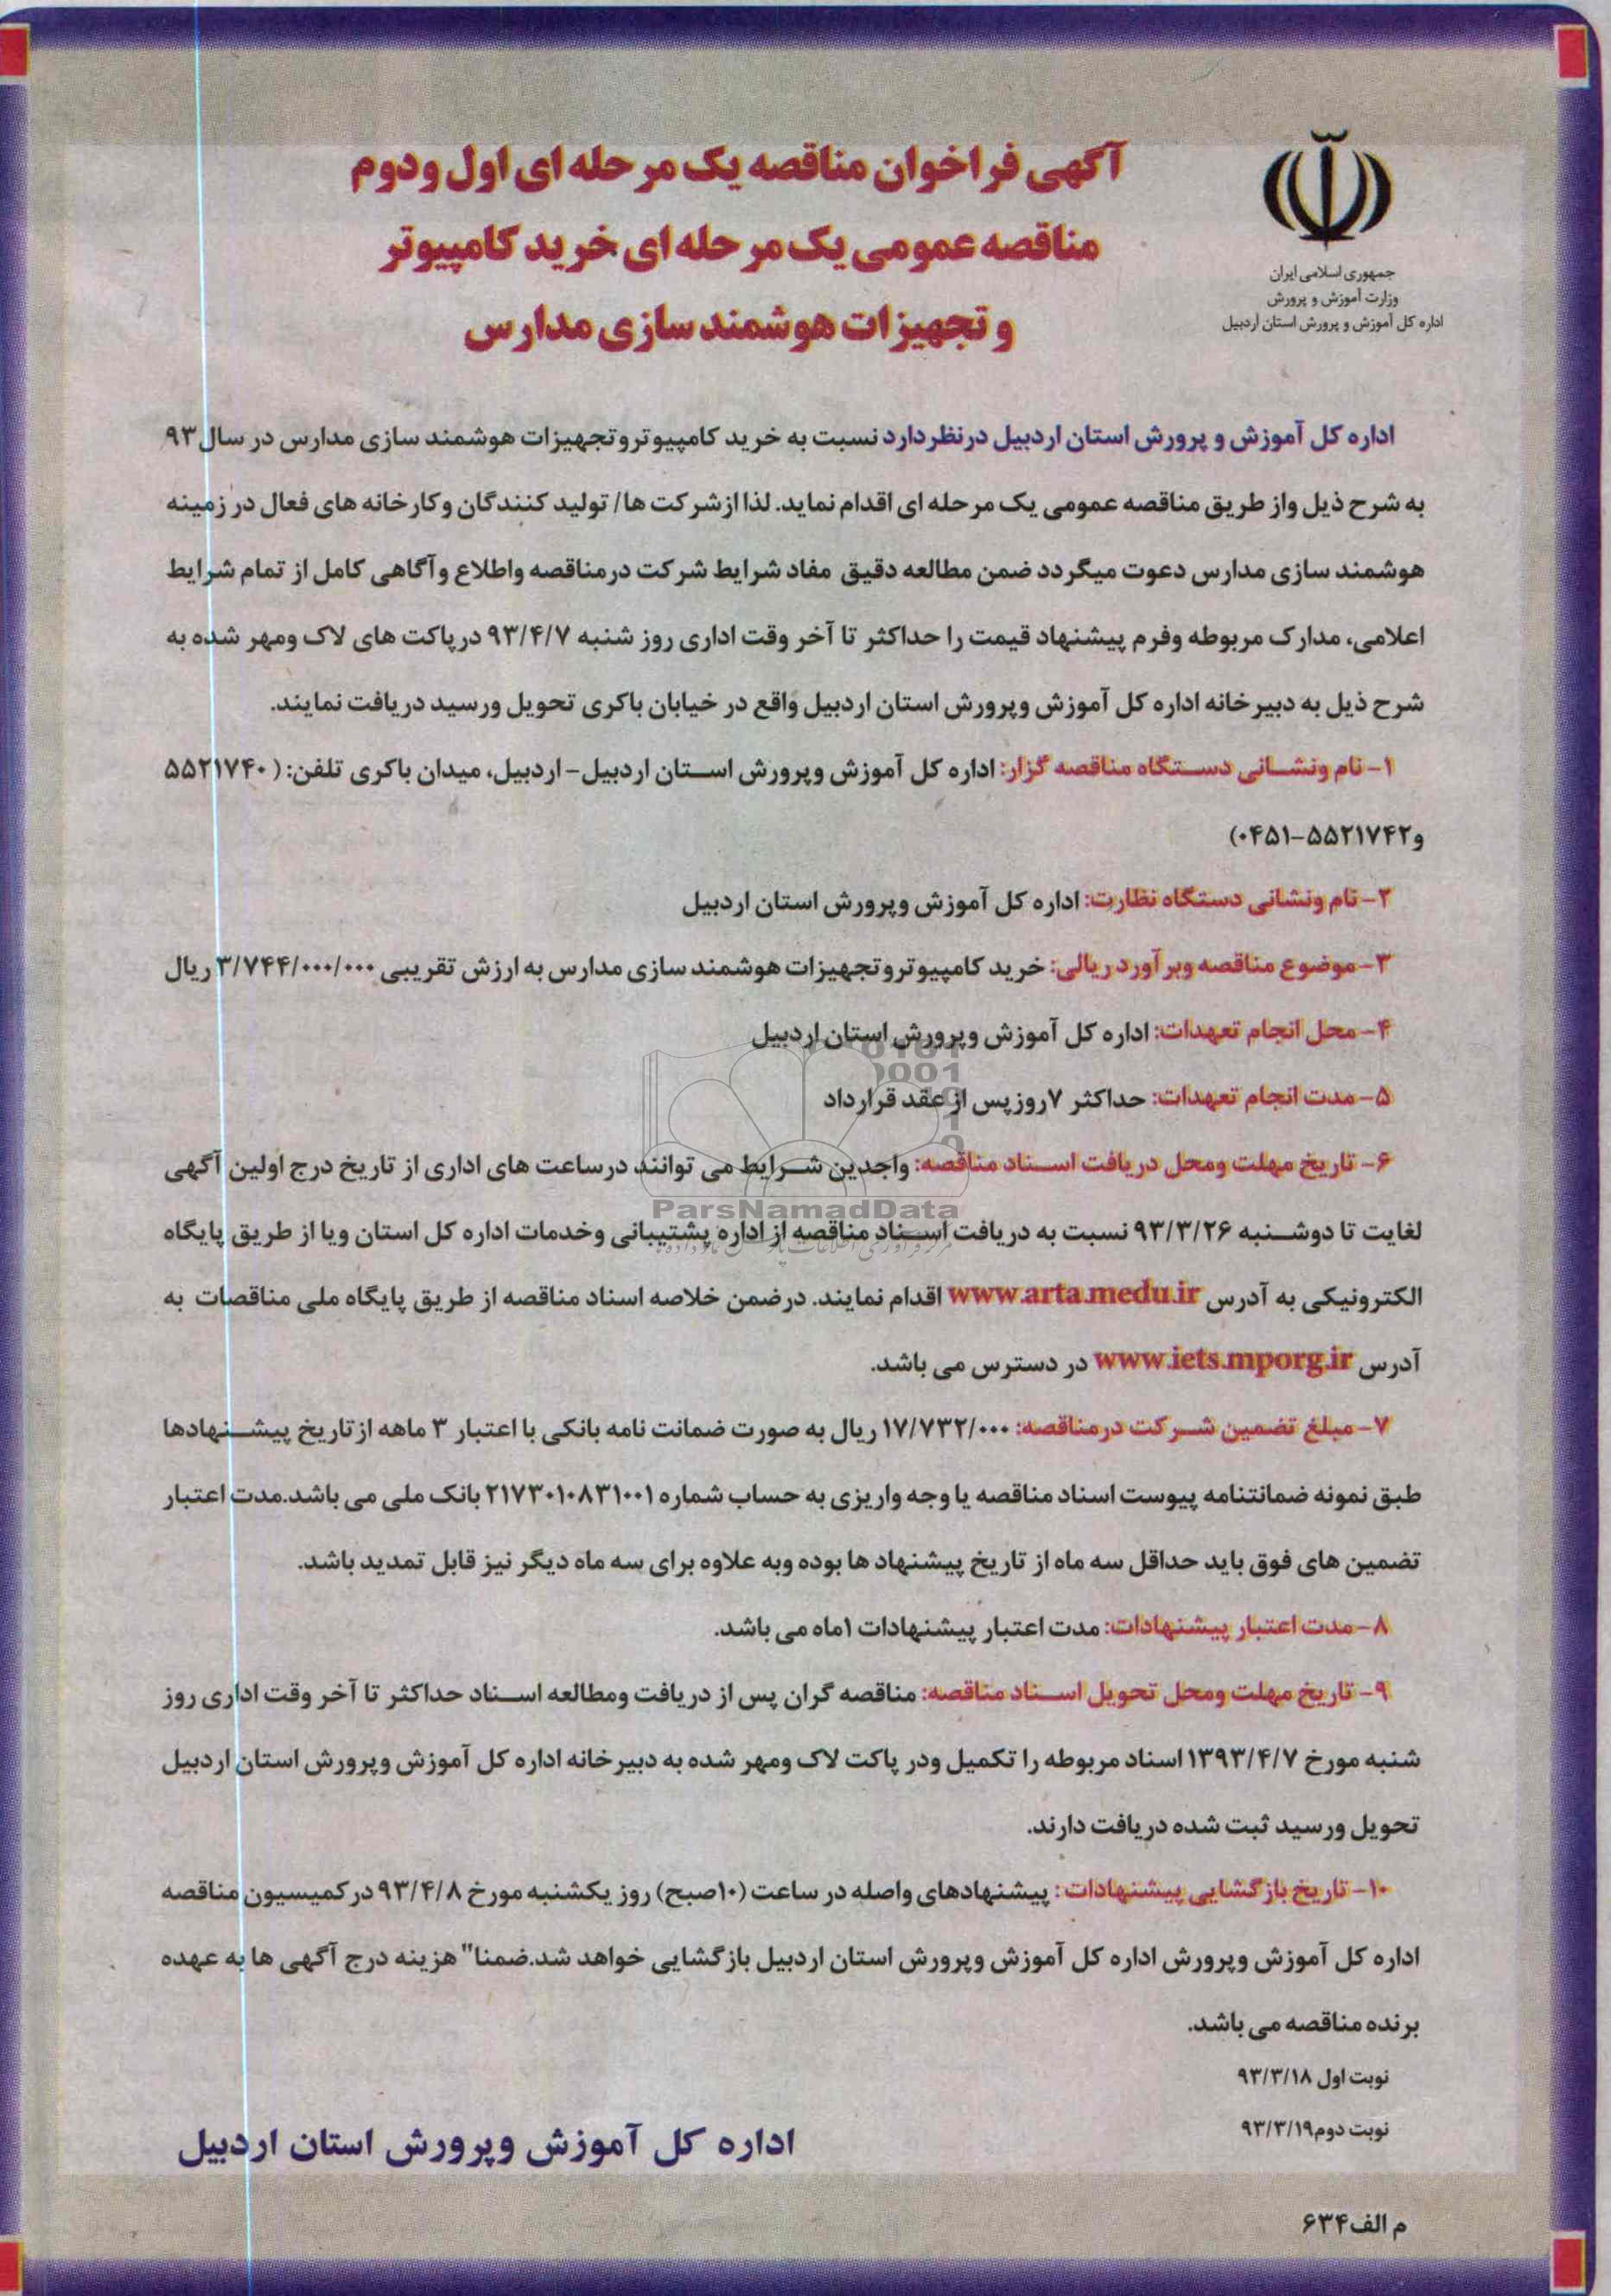 جمهوری اسلامی ایران
وزارت آموزش و پرورش
اداره کل آموزش و پرورش استان اردبیل
آگهی فراخوان مناقصه یک مرحله ای اول و دوم
مناقصه عمومی یک مرحله ای خرید کامپیوتر
و تجهیزات هوشمند سازی مدارس
اداره کل آموزش و پرورش استان اردبیل درنظردارد نسبت به خرید کامپیوتروتجهیزات هوشمند سازی مدارس در سال ۹۳
به شرح ذیل واز طریق مناقصه عمومی یک مرحله ای اقدام نماید. لذا ازشرکت ها/ تولید کنندگان وکارخانه های فعال در زمینه
هوشمند سازی مدارس دعوت میگردد ضمن مطالعه دقیق مفاد شرایط شرکت درمناقصه واطلاع وآگاهی کامل از تمام شرایط
اعلامی، مدارک مربوطه وفرم پیشنهاد قیمت را حداکثر تا آخر وقت اداری روز شنبه ۹۳/۴/۷ درپاکت های لاک ومهر شده به
شرح ذیل به دبیرخانه اداره کل آموزش وپرورش استان اردبیل واقع در خیابان باکری تحویل ورسید دریافت نمایند.
۱- نام ونشانی دستگاه مناقصه گزار: اداره کل آموزش وپرورش استان اردبیل- اردبیل، میدان باکری تلفن: ( ۵۵۲۱۷۴۰
و۵۵۲۱۷۴۲-۰۴۵۱)
۲- نام ونشانی دستگاه نظارت: اداره کل آموزش وپرورش استان اردبیل
۳- موضوع مناقصه وبرآورد ریالی: خرید کامپیوتروتجهیزات هوشمند سازی مدارس به ارزش تقریبی ۳/۷۴۴/۰۰۰/۰۰۰ ریال
۴- محل انجام تعهدات: اداره کل آموزش وپرورش استان اردبیل
۵- مدت انجام تعهدات: حداکثر ۷روزپس از عقد قرارداد
۶- تاریخ مهلت ومحل دریافت اسناد مناقصه: واجدین شرایط می توانند درساعت های اداری از تاریخ درج اولین آگهی
ParsNamadData
لغایت تا دوشنبه ۹۳/۳/۲۶ نسبت به دریافت اسناد مناقصه از اداره پشتیبانی وخدمات اداره کل استان ویا از طریق پایگاه
الکترونیکی به آدرس www.arta.medu.ir اقدام نمایند. درضمن خلاصه اسناد مناقصه از طریق پایگاه ملی مناقصات به
آدرس www.iets.mporg.ir در دسترس می باشد.
۷- مبلغ تضمین شرکت درمناقصه: ۱۷/۷۳۲/۰۰۰ ریال به صورت ضمانت نامه بانکی با اعتبار ۳ ماهه ازتاریخ پیشنهادها
طبق نمونه ضمانتنامه پیوست اسناد مناقصه یا وجه واریزی به حساب شماره ۲۱۷۳۰۱۰۸۳۱۰۰۱ بانک ملی می باشد.مدت اعتبار
تضمین های فوق باید حداقل سه ماه از تاریخ پیشنهاد ها بوده وبه علاوه برای سه ماه دیگر نیز قابل تمدید باشد.
۸- مدت اعتبار پیشنهادات: مدت اعتبار پیشنهادات ۱ماه می باشد.
۹- تاریخ مهلت ومحل تحویل اسناد مناقصه: مناقصه گران پس از دریافت ومطالعه اسناد حداکثر تا آخر وقت اداری روز
شنبه مورخ ۱۳۹۳/۴/۷ اسناد مربوطه را تکمیل ودر پاکت لاک ومهر شده به دبیرخانه اداره کل آموزش وپرورش استان اردبیل
تحویل ورسید ثبت شده دریافت دارند.
۱۰- تاریخ بازگشایی پیشنهادات : پیشنهادهای واصله در ساعت (۱۰صبح) روز یکشنبه مورخ ۹۳/۴/۸ درکمیسیون مناقصه
اداره کل آموزش وپرورش اداره کل آموزش وپرورش استان اردبیل بازگشایی خواهد شد.ضمنا" هزینه درج آگهی ها به عهده
برنده مناقصه می باشد.
نوبت اول ۹۳/۳/۱۸
نوبت دوم۹۳/۳/۱۹
اداره کل آموزش وپرورش استان اردبیل
م الف ۶۳۴